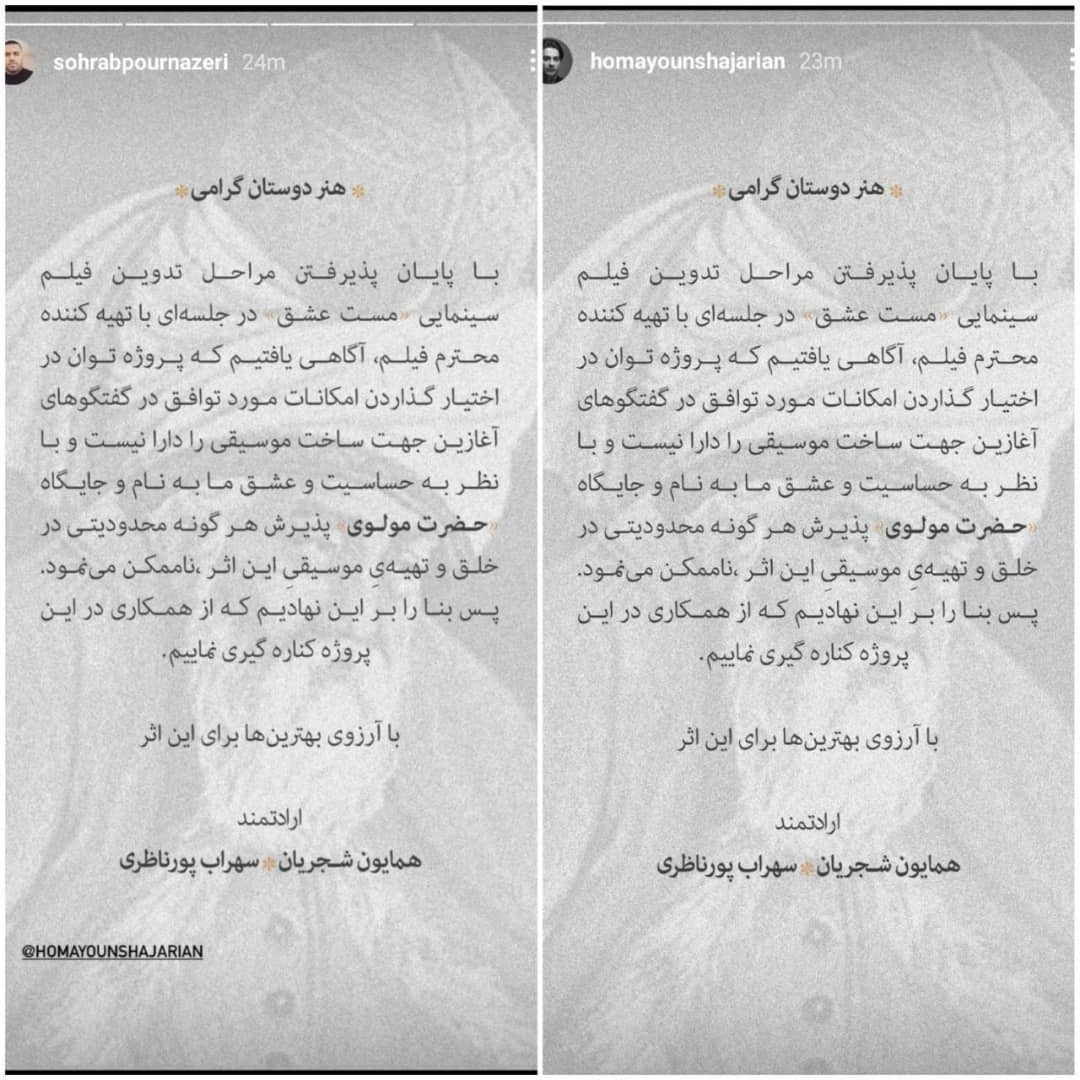 sohrabpournazeri 24m
هنر دوستان گرامی
بـا پایـان پذیرفـتن مراحـل تدویـن فیلـم
سـینمایی «مسـت عشـق» در جلسه‌ای با تهیه کننده
محـترم فیلـم، آگاهـی یافتیـم کـه پـروژه تـوان در
اختیـار گـذاردن امکانـات مـورد توافـق در گفتگوهای
آغازیـن جهـت سـاخت موسـیقی را دارا نیسـت و بـا
نظـر بـه حساسـیت و عشـق مـا بـه نـام و جایـگاه
«حـضرت مولـوی» پذیـرش هـر گونـه محدودیتـی در
خلـق و تهیـه‌یِ موسـیقیِ ایـن اثـر ،ناممکـن می‌نمـود.
پـس بنـا را بـر ایـن نهادیـم کـه از همـکاری در ایـن
پروژه کناره گیری نماییم.
با آرزوی بهترین‌ها برای این اثر
ارادتمند
همایون شـجریان سهراب پورناظری
@HOMAYOUNSHAJARIAN
homayounshajarian 23m
هنر دوستان گرامی
بـا پایـان پذیرفـتن مراحـل تدویـن فیلـم
سـینمایی «مسـت عشـق» در جلسه‌ای با تهیه کننده
محـترم فیلـم، آگاهـی یافتیـم کـه پـروژه تـوان در
اختیـار گـذاردن امکانـات مـورد توافـق در گفتگوهای
آغازیـن جهـت سـاخت موسـیقی را دارا نیسـت و بـا
نظـر بـه حساسـیت و عشـق مـا بـه نـام و جایـگاه
«حـضرت مولـوی» پذیـرش هـر گونـه محدودیتـی در
خلـق و تهیـه‌یِ موسـیقیِ ایـن اثـر ،ناممکـن می‌نمـود.
پـس بنـا را بـر ایـن نهادیـم کـه از همـکاری در ایـن
پروژه کناره گیری نماییم.
با آرزوی بهترین‌ها برای این اثر
ارادتمند
همایون شـجریان سهراب پورناظری